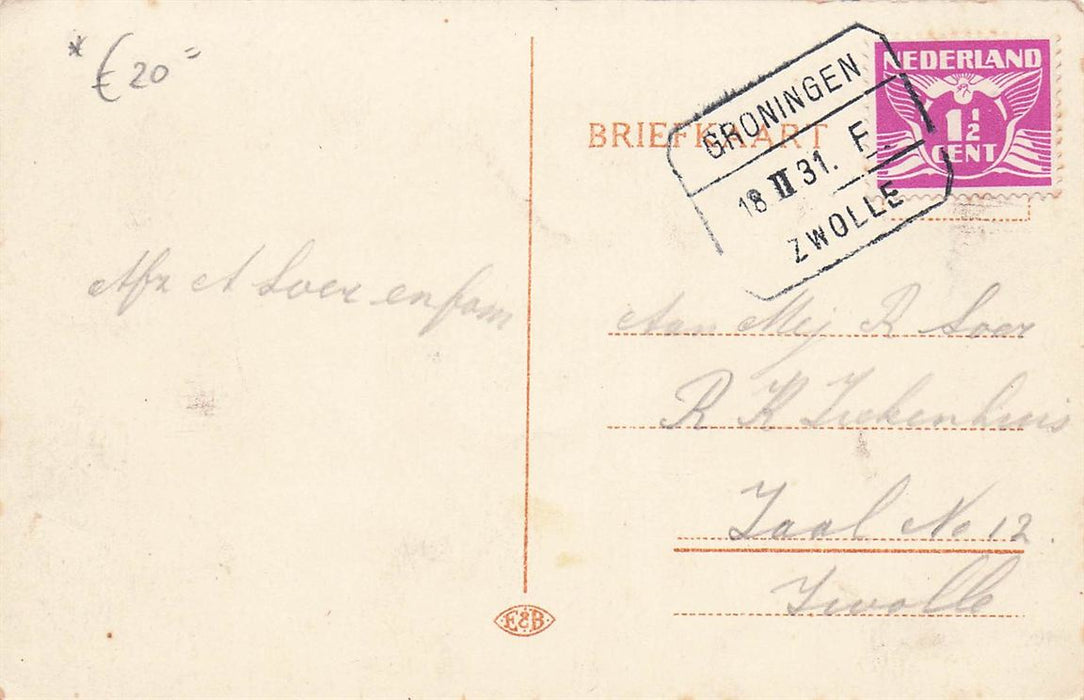 * € 20 =
BRIEFKAART
NEDERLAND
1½
CENT
GRONINGEN
18 II 31. F.
ZWOLLE
Afz A Soer en fam
Aan Mej R Soer
R K Ziekenhuis
Zaal No 12.
Zwolle
E&B